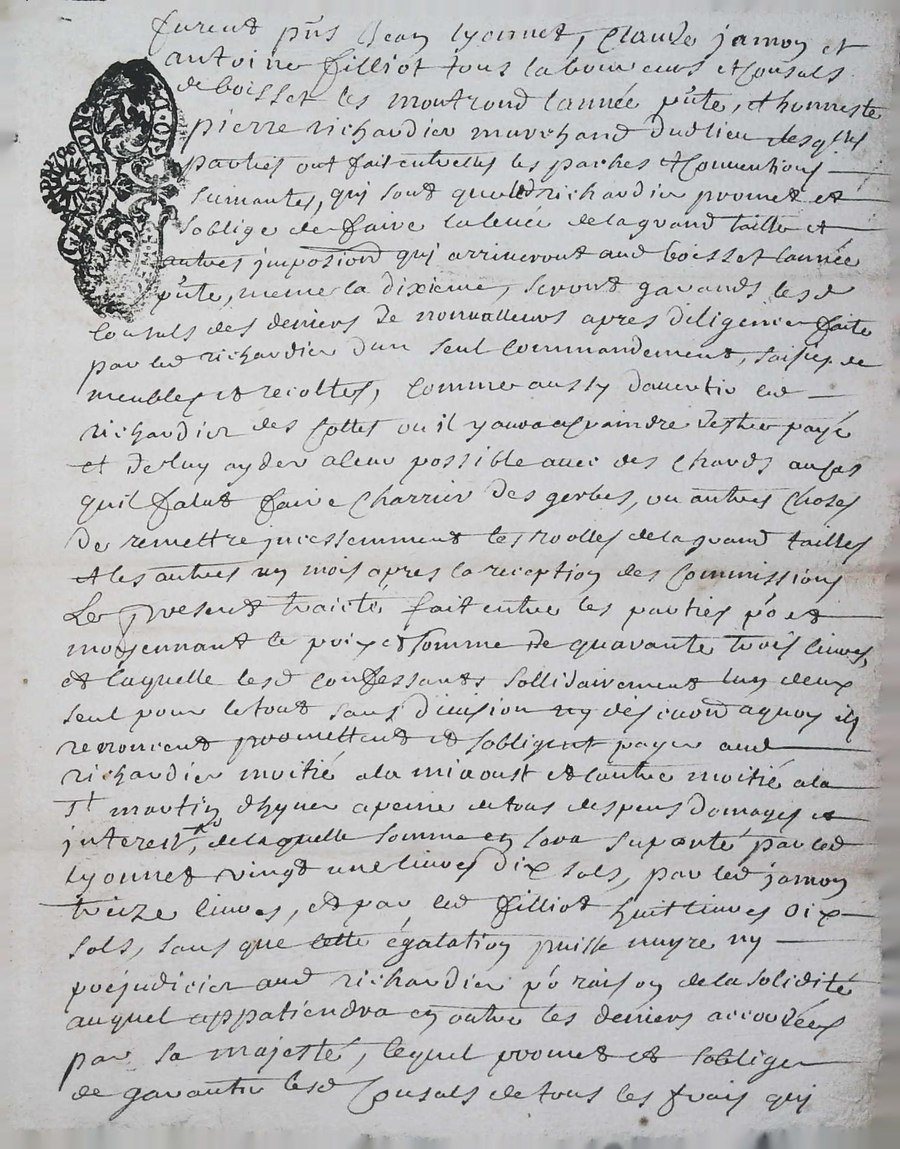 furent pñs Jean lyonnet, Claude jamon et
antoine filliot tous laboureurs et Consuls
de boisset les montrond lannée pnte, et honneste
pierre richardier marchand dudlieu lesqlles
parties ont fait entrelles les paches et Conventions
suivantes, qui sont queled richardier promet et
soblige de faire la levée de la grand taille et
autres imposiond qui arriveront aud boisset lannée
pnte, meme la dixieme, seront garands lesd
Consuls des deniers de nonvalleurs apres diligences faite
par led richardier dun seul commandement, saisies de
meubles et recoltes, comme aussy davertir led
richardier des Cottes ou il y aura a craindre destre payé
et de luy ayder a leur possible avec des Chards au cas
quil falut faire Charrier des gerbes, ou autres Choses
de remettre incessemment les roolles de la grand tailles
et les autres un mois apres la reception des Commissions
Le present traicté fait entre les parties po et
moyennant le prix et somme de quarante trois livres,
et laquelle lesd confessants sollidairement lun deux
seul pour le tout sans division ny discuond a quoy ils
renoncent promettent et sobligent payer aud
richardier moitié a la miaoust et lautre moitié a la
St martin dhyver a peine de tous despens domages et
interest, de laquelle somme en sera suporté par led
lyonnet vingt une livres dix sols, par led jamon
treize livres, et par led filliot huit livres dix
sols, sans que cette égalation puisse nuyre ny
prejudicier aud richardier po raison de la solidité
auquel appatiendra en outre les deniers accordées
par sa majesté, lequel promet et soblige
de garantir lesd Consuls de tous les frais qui